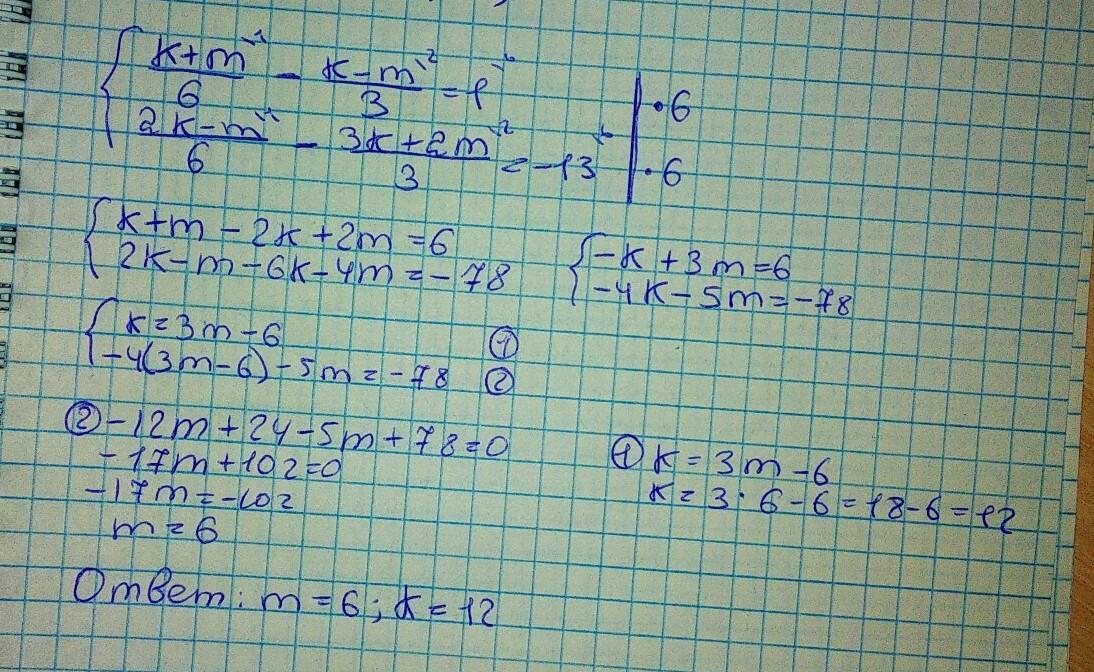 { (k+m)/6 \1 - (k-m)/3 \2 = 1 \6 | ·6
(2k-m)/6 \1 - (3k+2m)/3 \2 = -13 \6 | ·6
{ k+m-2k+2m=6
2k-m-6k-4m=-78
{ -k+3m=6
-4k-5m=-78
{ k=3m-6 ①
-4(3m-6)-5m=-78 ②
② -12m+24-5m+78=0
-17m+102=0
-17m=-102
m=6
① k=3m-6
k=3·6-6=18-6=12
Ответ: m=6; k=12